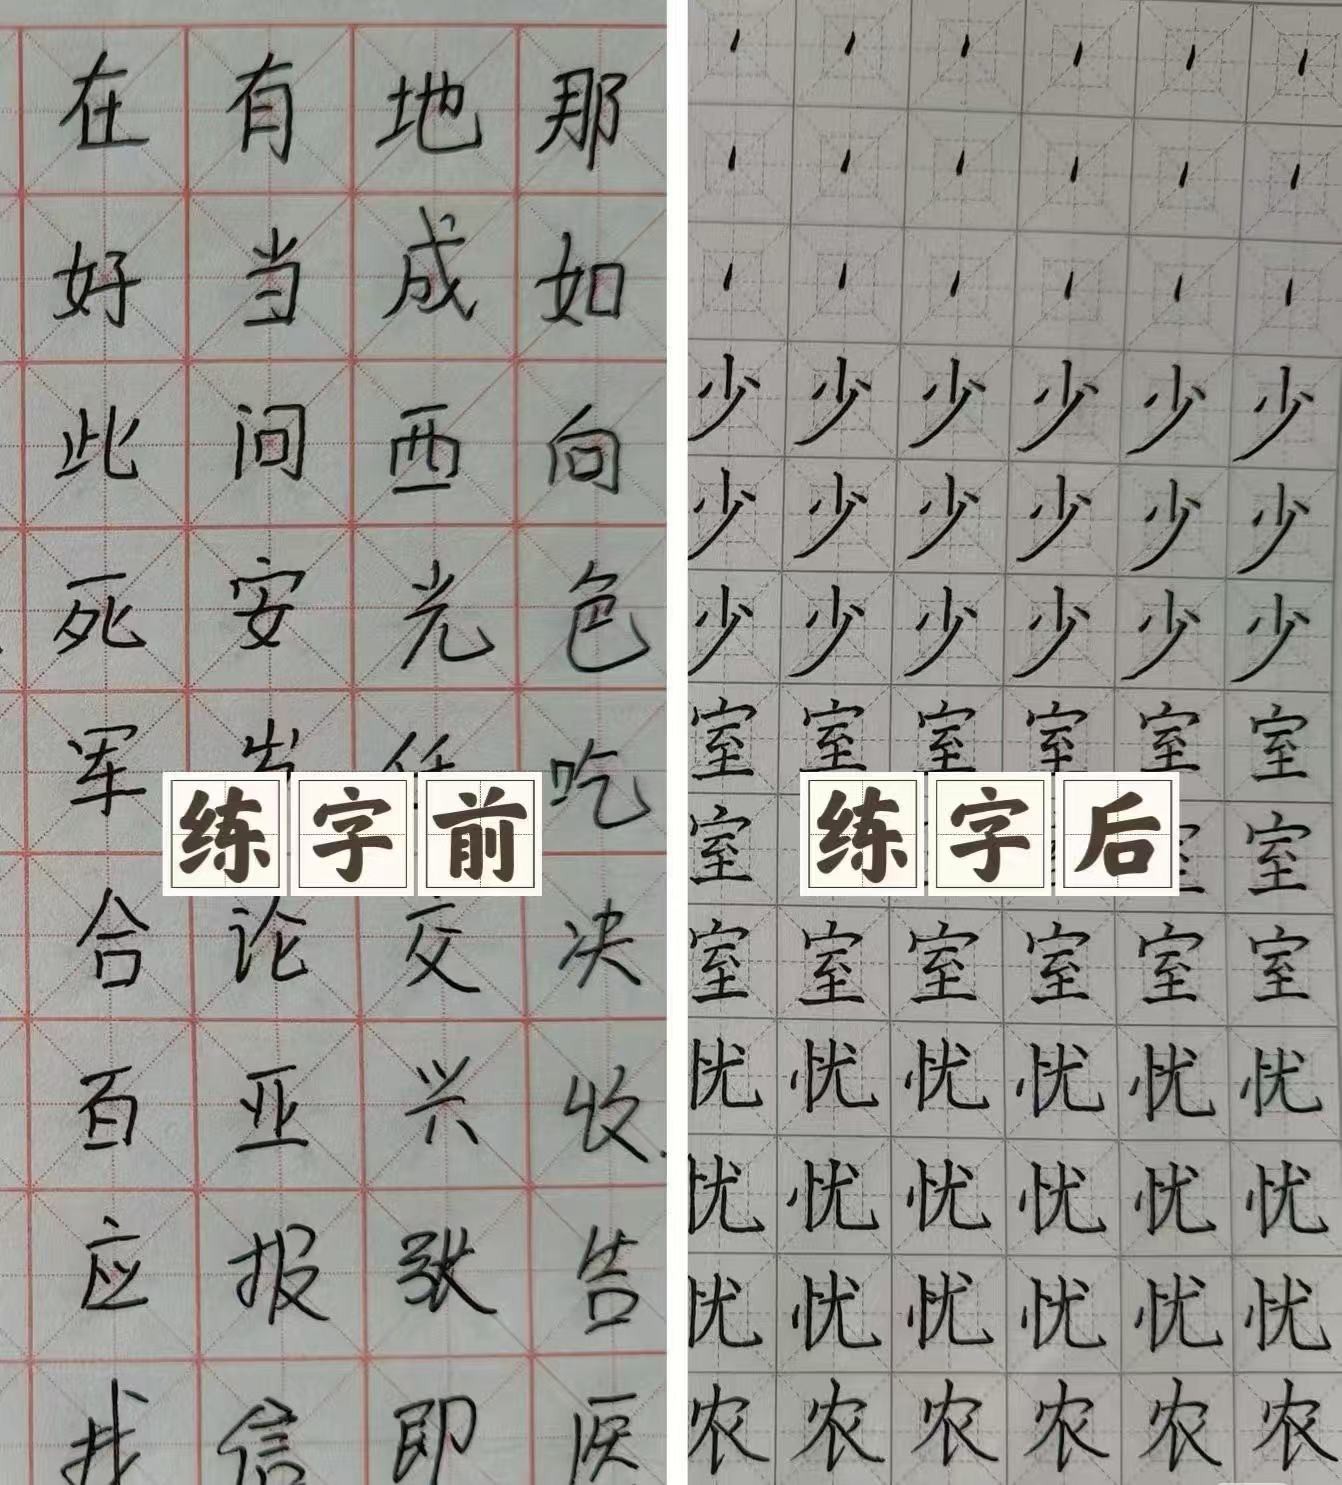 在有地那
好当成如
此问西向
死安光色
军岁任吃
练字前
合论交决
百亚兴收
应报张告
找信即医
少少少少少少
少少少少少少
少少少少少少
室室室室室室
室室室
练字后
室室室室室室
忧忧忧忧忧忧
忧忧忧忧忧忧
忧忧忧忧忧忧
农农农农农农